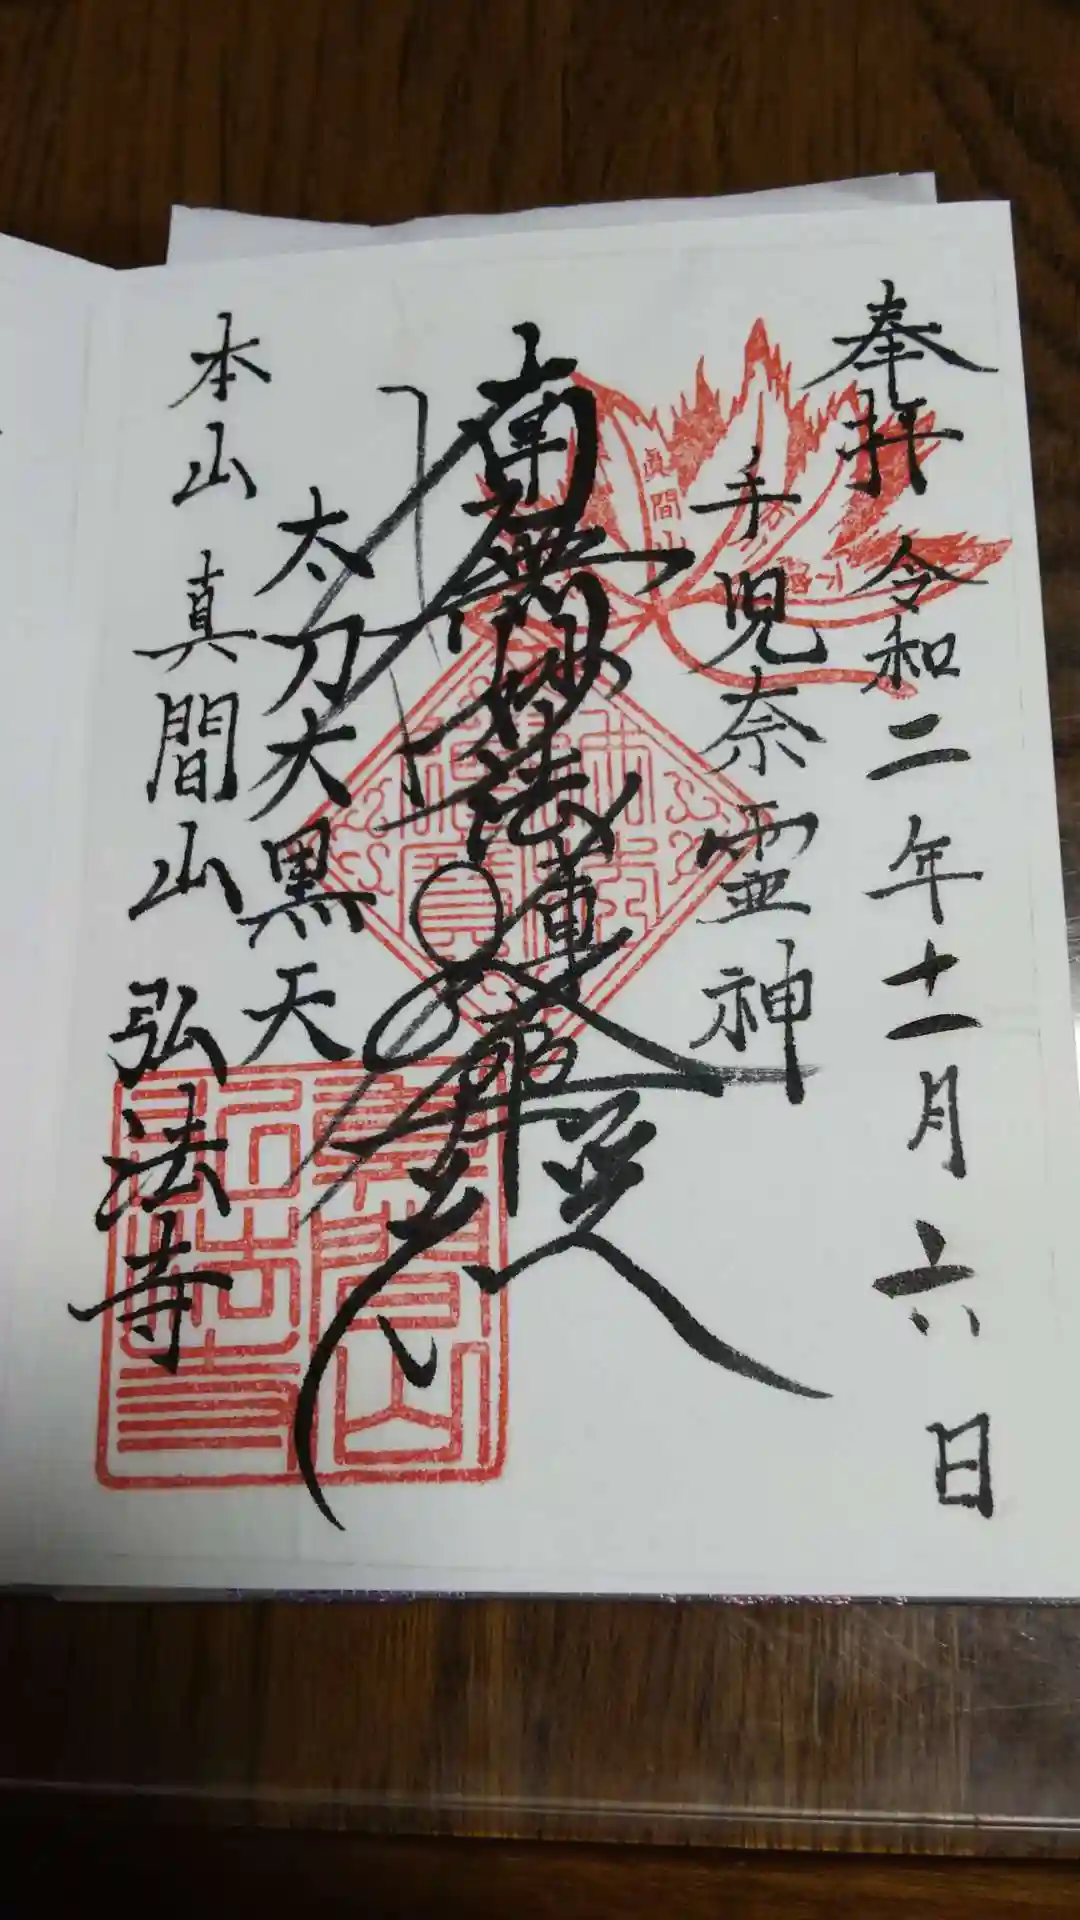 奉拝 令和二年十一月六日
手児奈霊神
南無妙法蓮華経
太刀大黒天
本山 真間山 弘法寺
眞間山